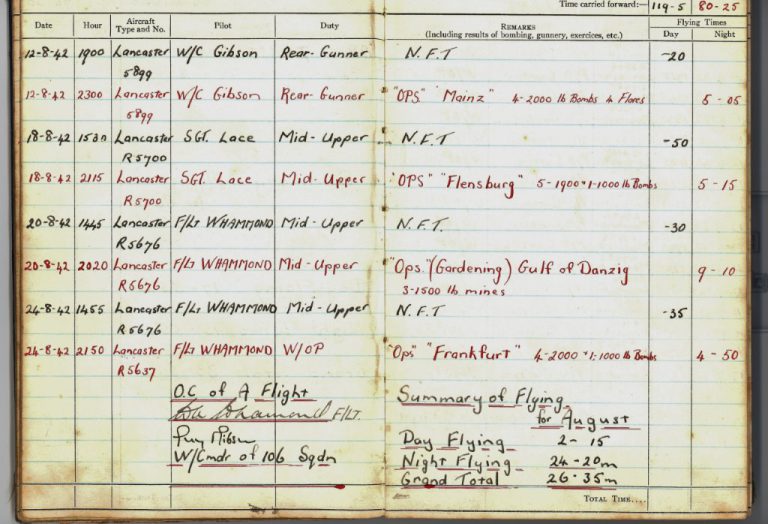 Time carried forward:— 119-5 80-25
Date Hour Aircraft Type and No. Pilot Duty REMARKS (Including results of bombing, gunnery, exercises, etc.) Flying Times Day Night
12-8-42 1900 Lancaster 5899 W/C Gibson Rear-Gunner N.F.T -20
12-8-42 2300 Lancaster 5899 W/C Gibson Rear-Gunner "OPS" "Mainz" 4-2000 lb Bombs 4 Flares 5-05
18-8-42 1530 Lancaster R5700 SGT. Lace Mid-Upper N.F.T -50
18-8-42 2115 Lancaster R5700 SGT. Lace Mid-Upper "OPS" "Flensburg" 5-1900 + 1-1000 lb Bombs 5-15
20-8-42 1445 Lancaster R5676 F/Lt WHAMMOND Mid-Upper N.F.T. -30
20-8-42 2020 Lancaster R5676 F/Lt WHAMMOND Mid-Upper "Ops" (Gardening) Gulf of Danzig 3-1500 lb mines 9-10
24-8-42 1455 Lancaster R5676 F/Lt WHAMMOND Mid-Upper N.F.T -35
24-8-42 2150 Lancaster R5637 F/Lt WHAMMOND W/OP "Ops" "Frankfurt" 4-2000 + 1-1000 lb Bombs 4-50
O.C of A Flight
Whamond F/LT.
Guy Gibson
W/Cmdr of 106 Sqdn
Summary of Flying
for August
Day Flying 2-15
Night Flying 24-20m
Grand Total 26-35m
TOTAL TIME....